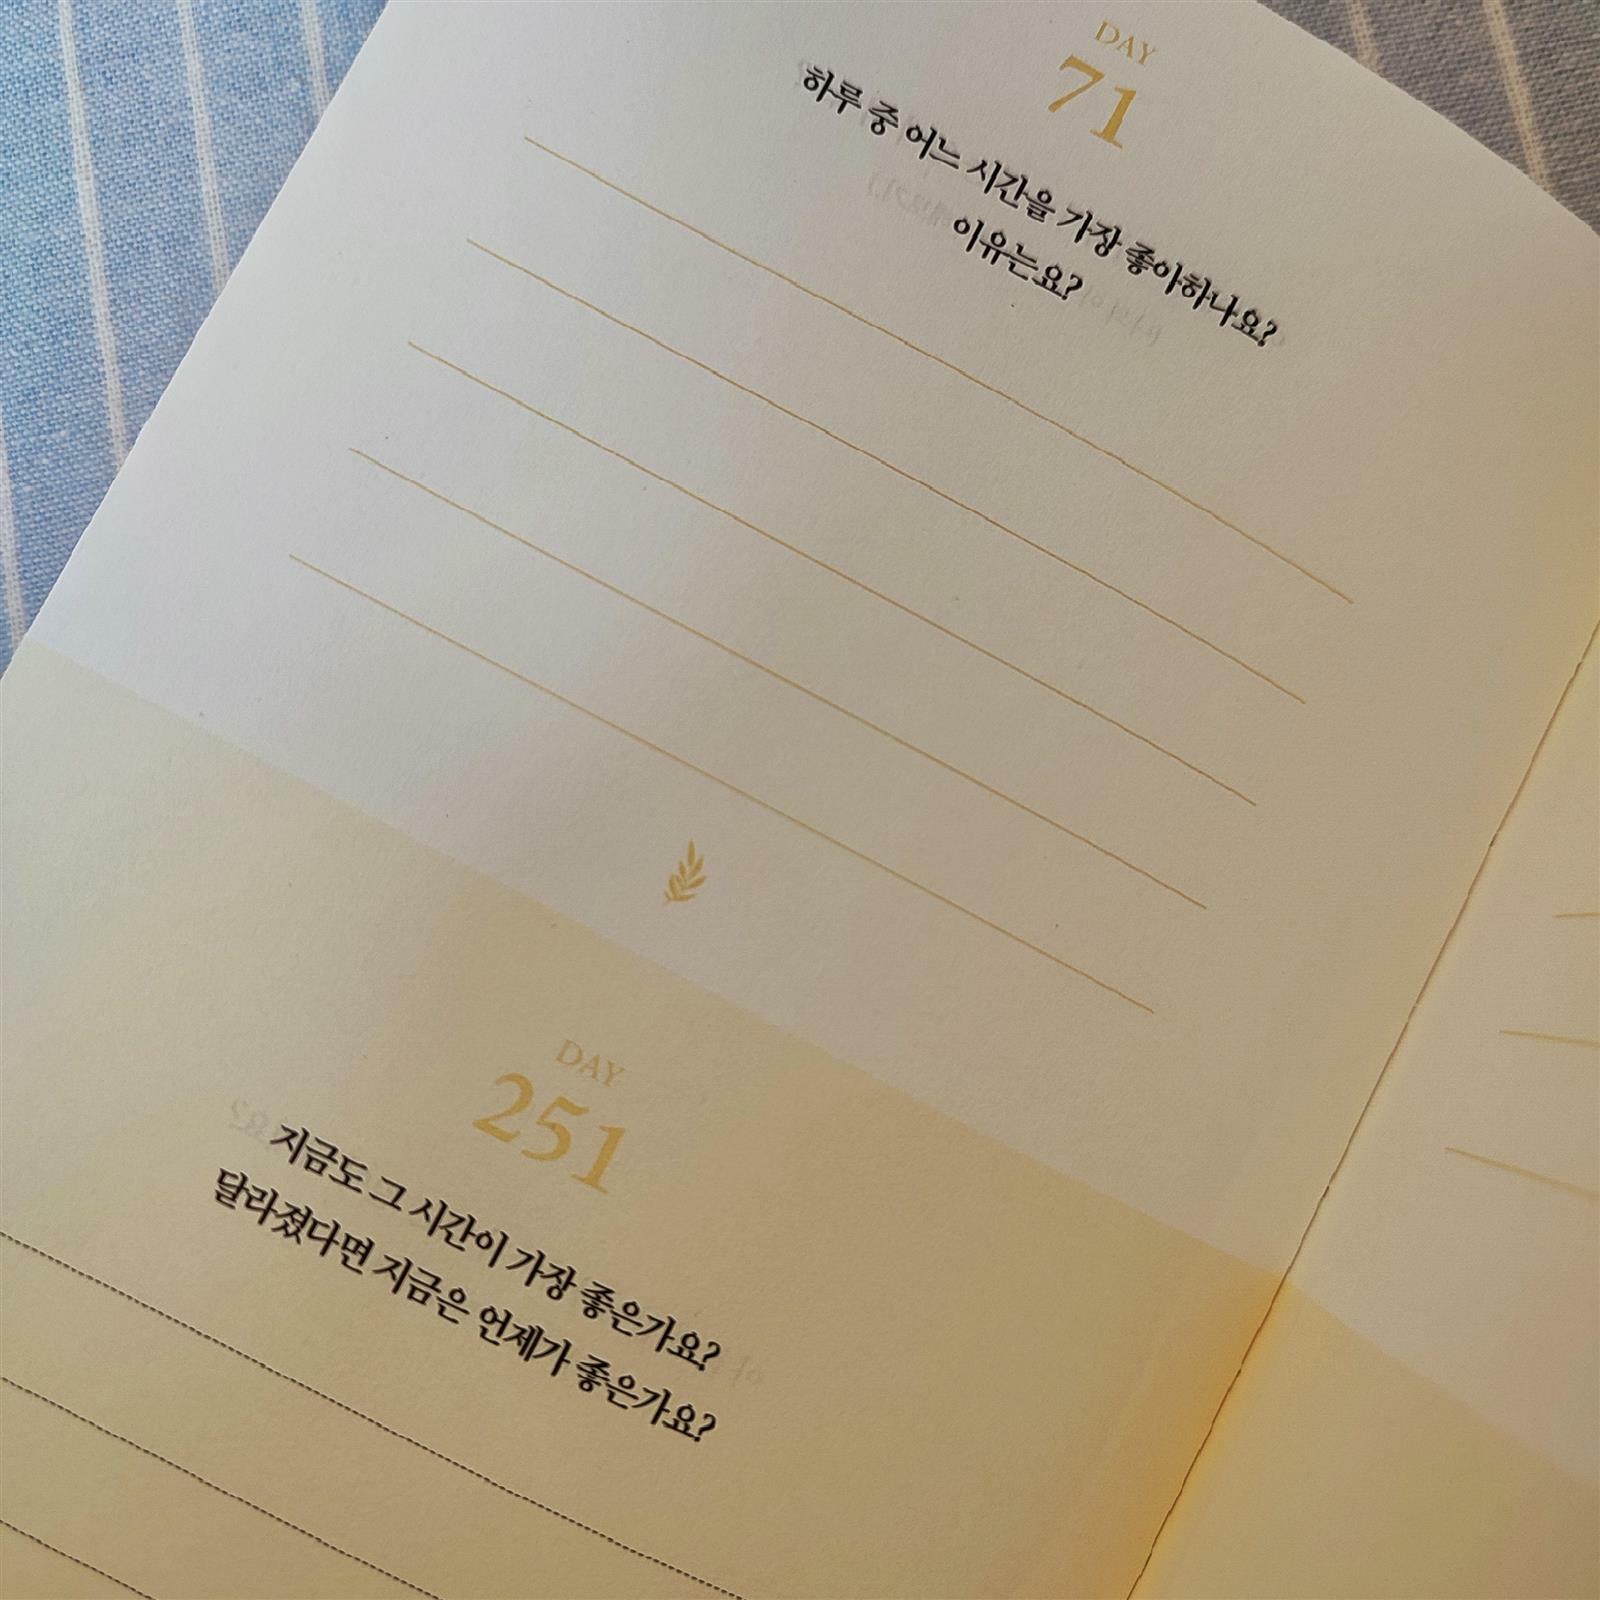 DAY
71
하루 중 어느 시간을 가장 좋아하나요?
이유는요?
DAY
251
지금도 그 시간이 가장 좋은가요?
달라졌다면 지금은 언제가 좋은가요?